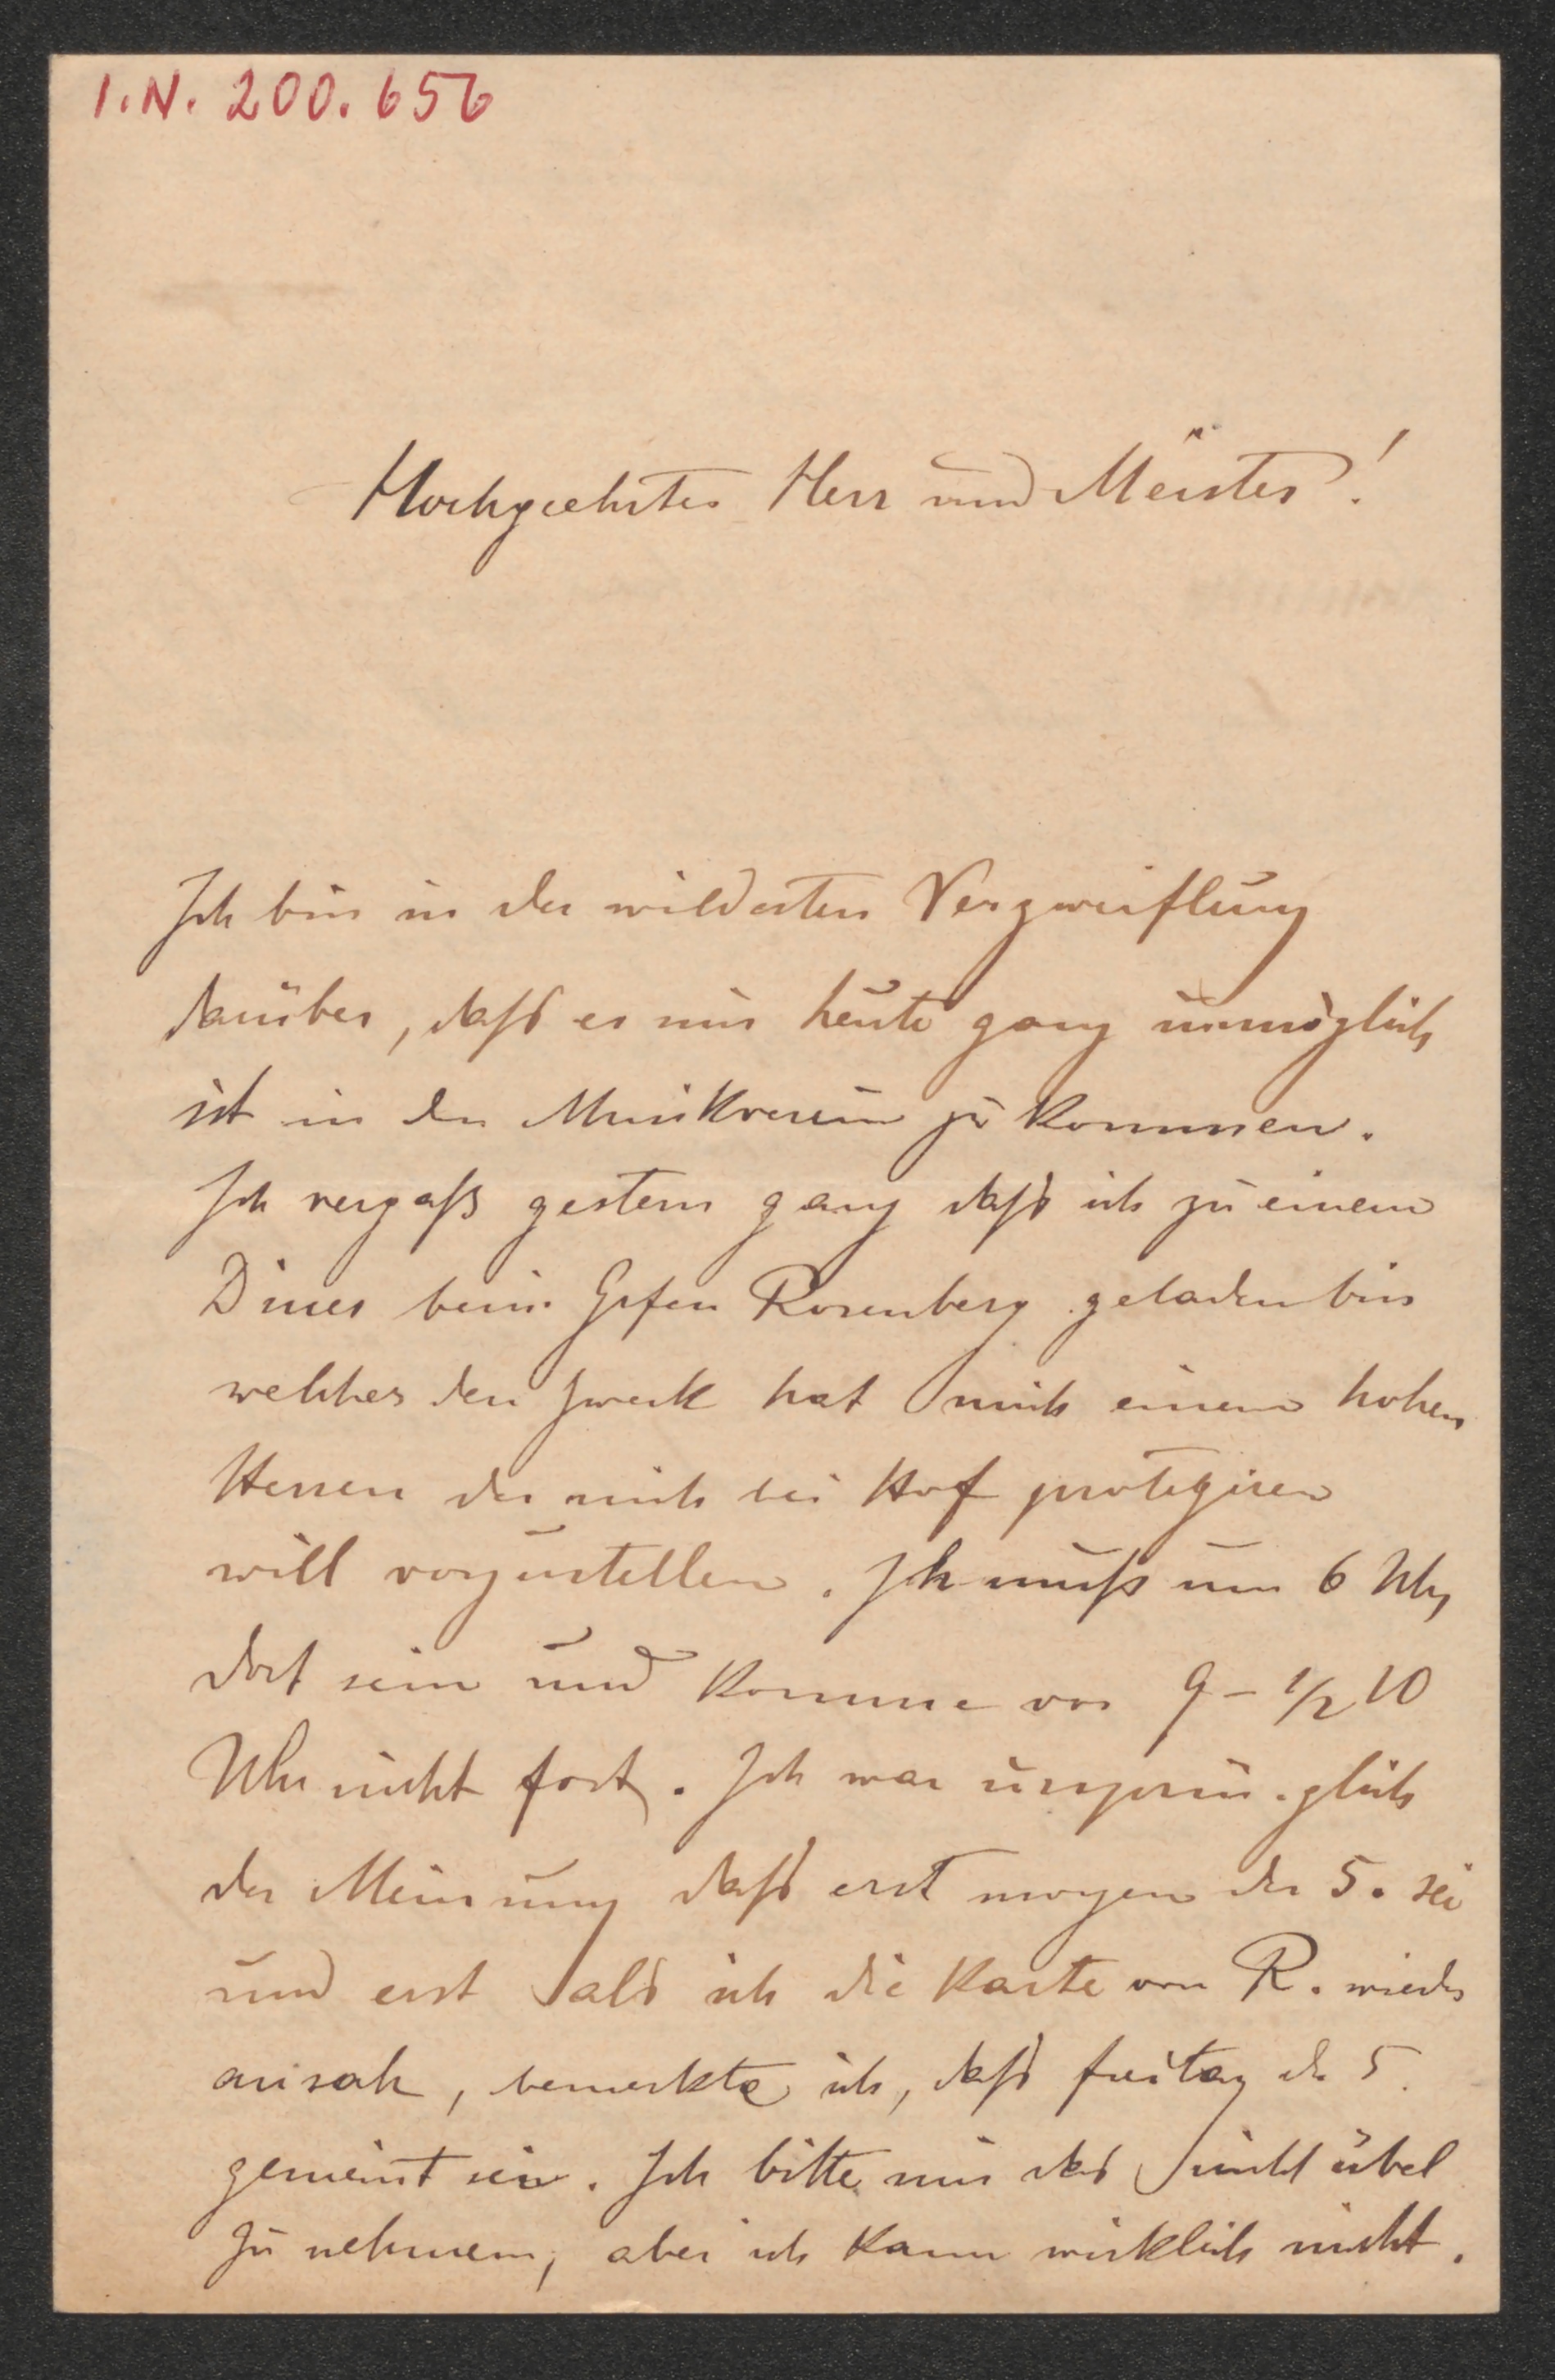 I.N. 200.656
Hochgeehrter Herr und Meister!
Ich bin in der wildesten Verzweiflung
darüber, daſs es mir heute ganz unmöglich
ist in den Musikverein zu kommen.
Ich vergaß gestern ganz daſs ich zu einem
Diner beim Grfen Rosenberg geladen bin
welches den Zweck hat mich einem hohen
Herren der mich bei Hof protegiren
will vorzustellen. Ich muß um 6 Uhr
dort sein und komme vor 9 – 1/2 10
Uhr nicht fort. Ich war ursprünglich
der Meinung daſs erst morgen der 5. sei
und erst als ich die Karte von R. wieder
ansah, bemerkte ich, daſs freitag d. 5.
gemeint sei. Ich bitte mir das nicht übel
zu nehmen, aber ich kann wirklich nicht.